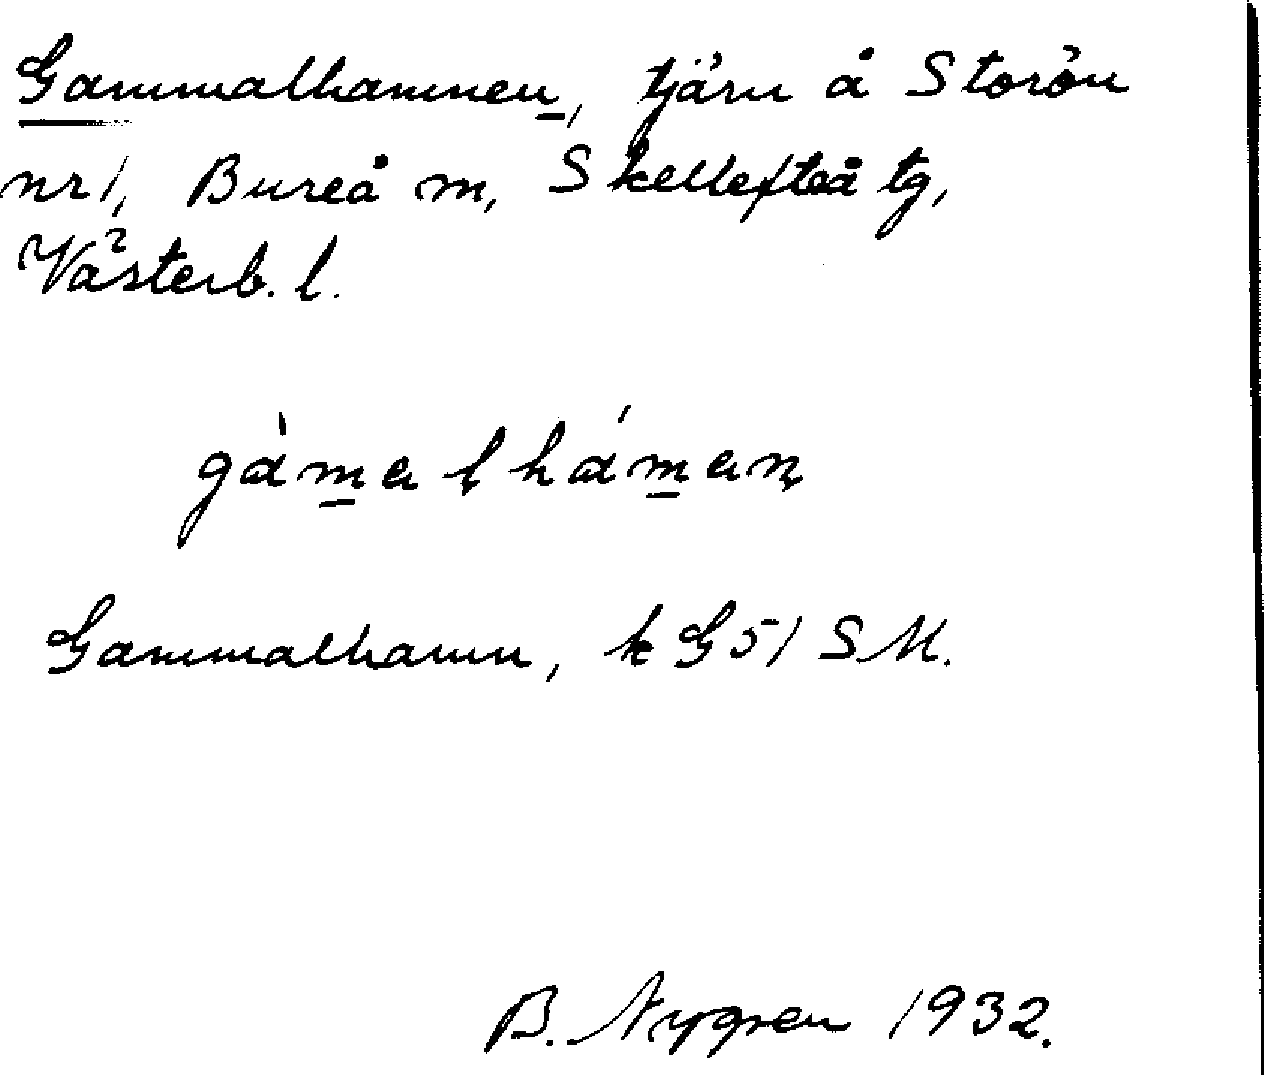 Gammalhamnen, tjärn å Storön
nr 1, Bureå m, Skellefteå tg,
Västerb. l.
gàmalháman
Gammalhamn, k G 51 SM.
B. Nygren 1932.